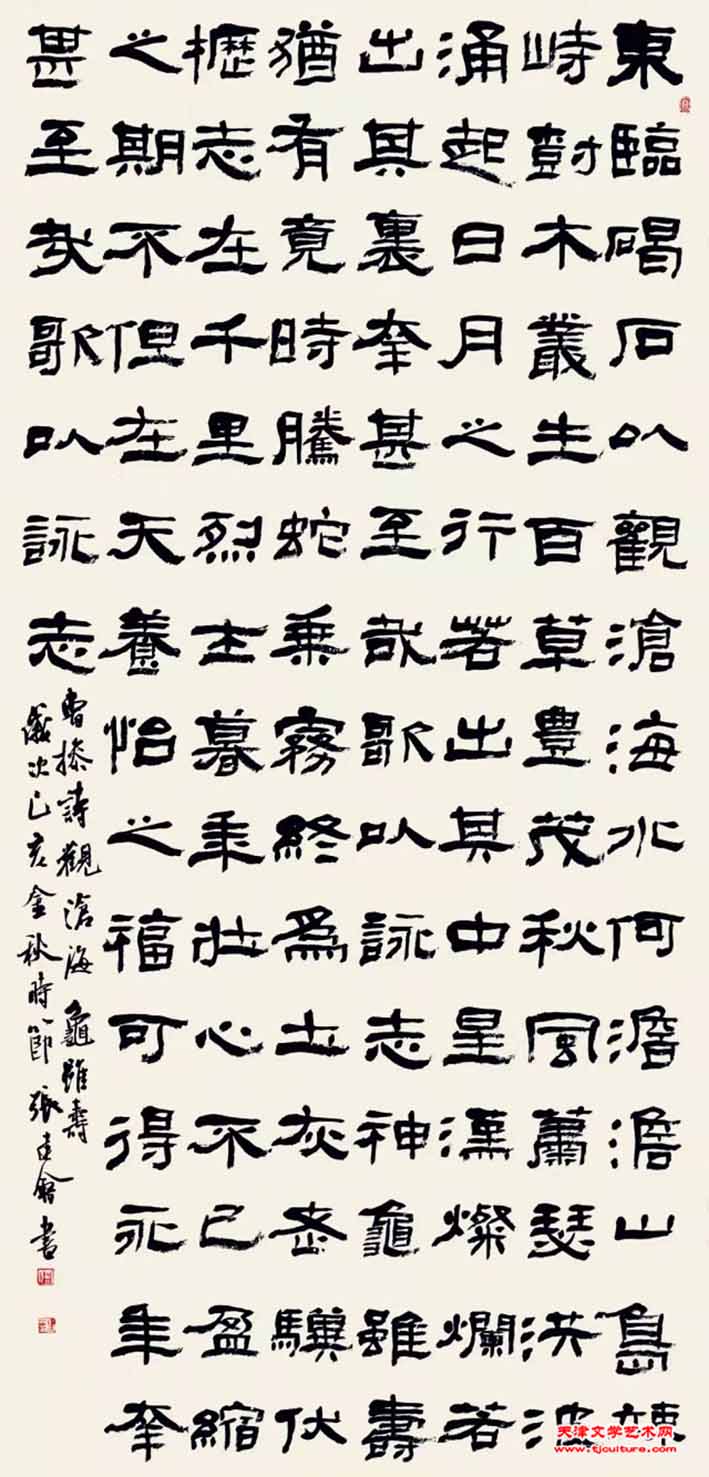 東臨碣石以觀滄海水何澹澹山島竦
峙樹木叢生百草豐茂秋風蕭瑟洪波
涌起日月之行若出其中星漢燦爛若
出其裏幸甚至哉歌以詠志神龜雖壽
猶有竟時騰蛇乘霧終為土灰老驥伏
櫪志在千里烈士暮年壯心不已盈縮
之期不但在天養怡之福可得永年幸
甚至哉歌以詠志
曹操詩觀滄海龜雖壽
歲次己亥金秋時節張建會書
天津文学艺术网
www.tjculture.com